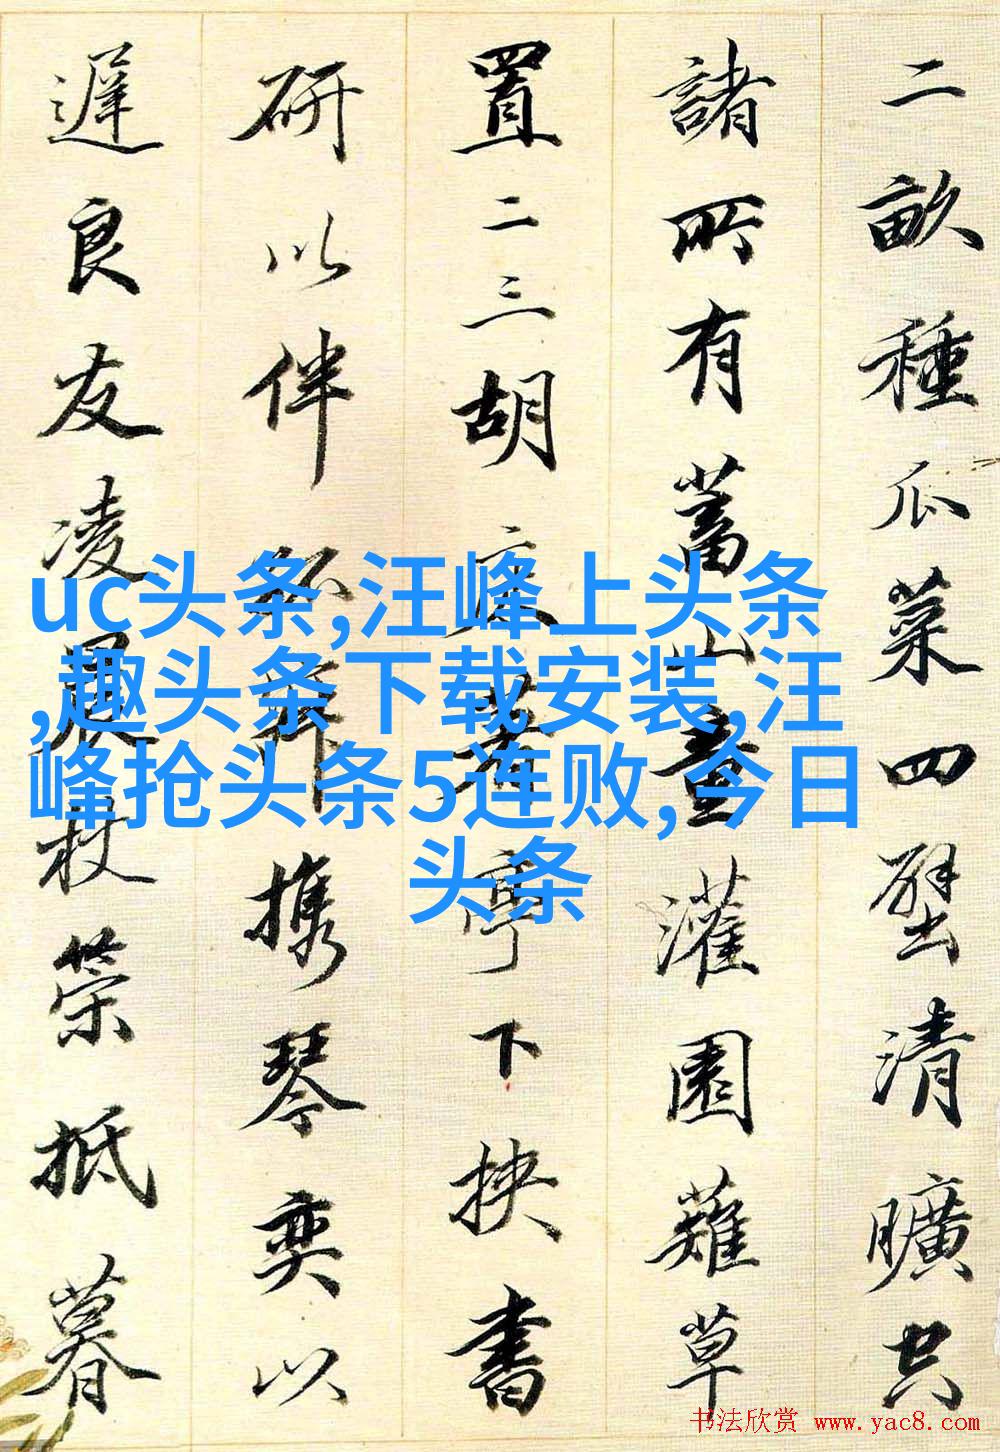 二畝種瓜菜四壁清曠共
諸所有蓄山童灌園薙草
置二三胡床著亭下挾書
研以伴孤寂携琴奕以
遲良友凌晨杖策抵暮
uc头条,汪峰上头条
,趣头条下载安装,汪
峰抢头条5连败,今日
头条
书法欣赏 www.yac8.com